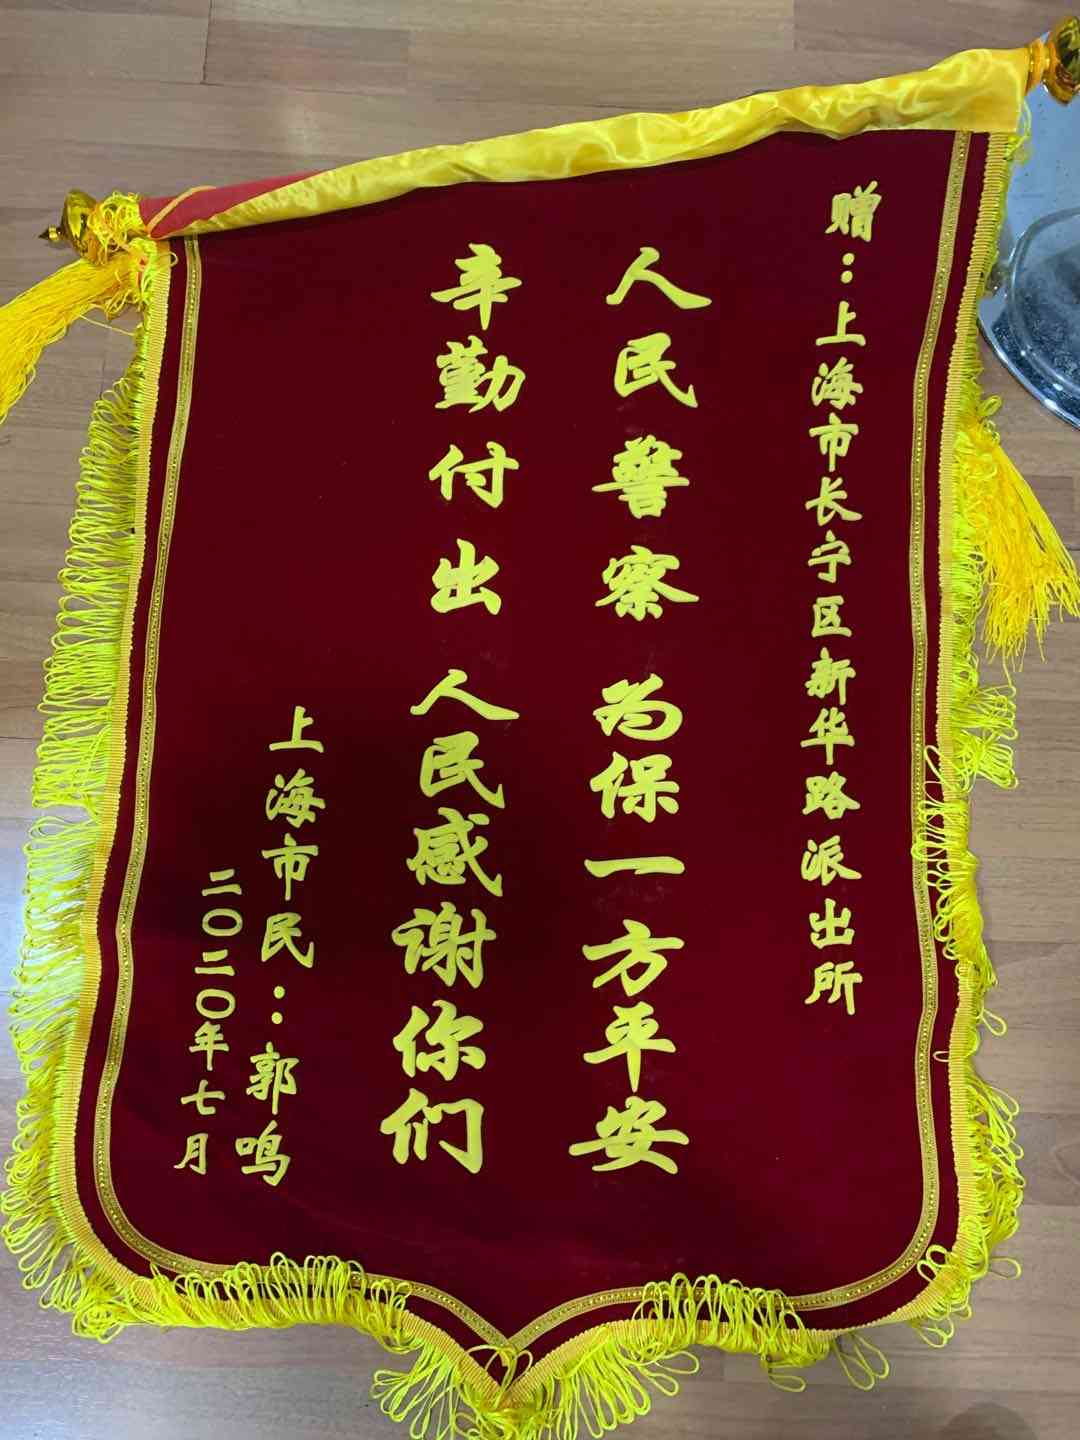 赠：上海市长宁区新华路派出所
人民警察为保一方平安
辛勤付出人民感谢你们
上海市民：郭鸣
二〇二〇年七月